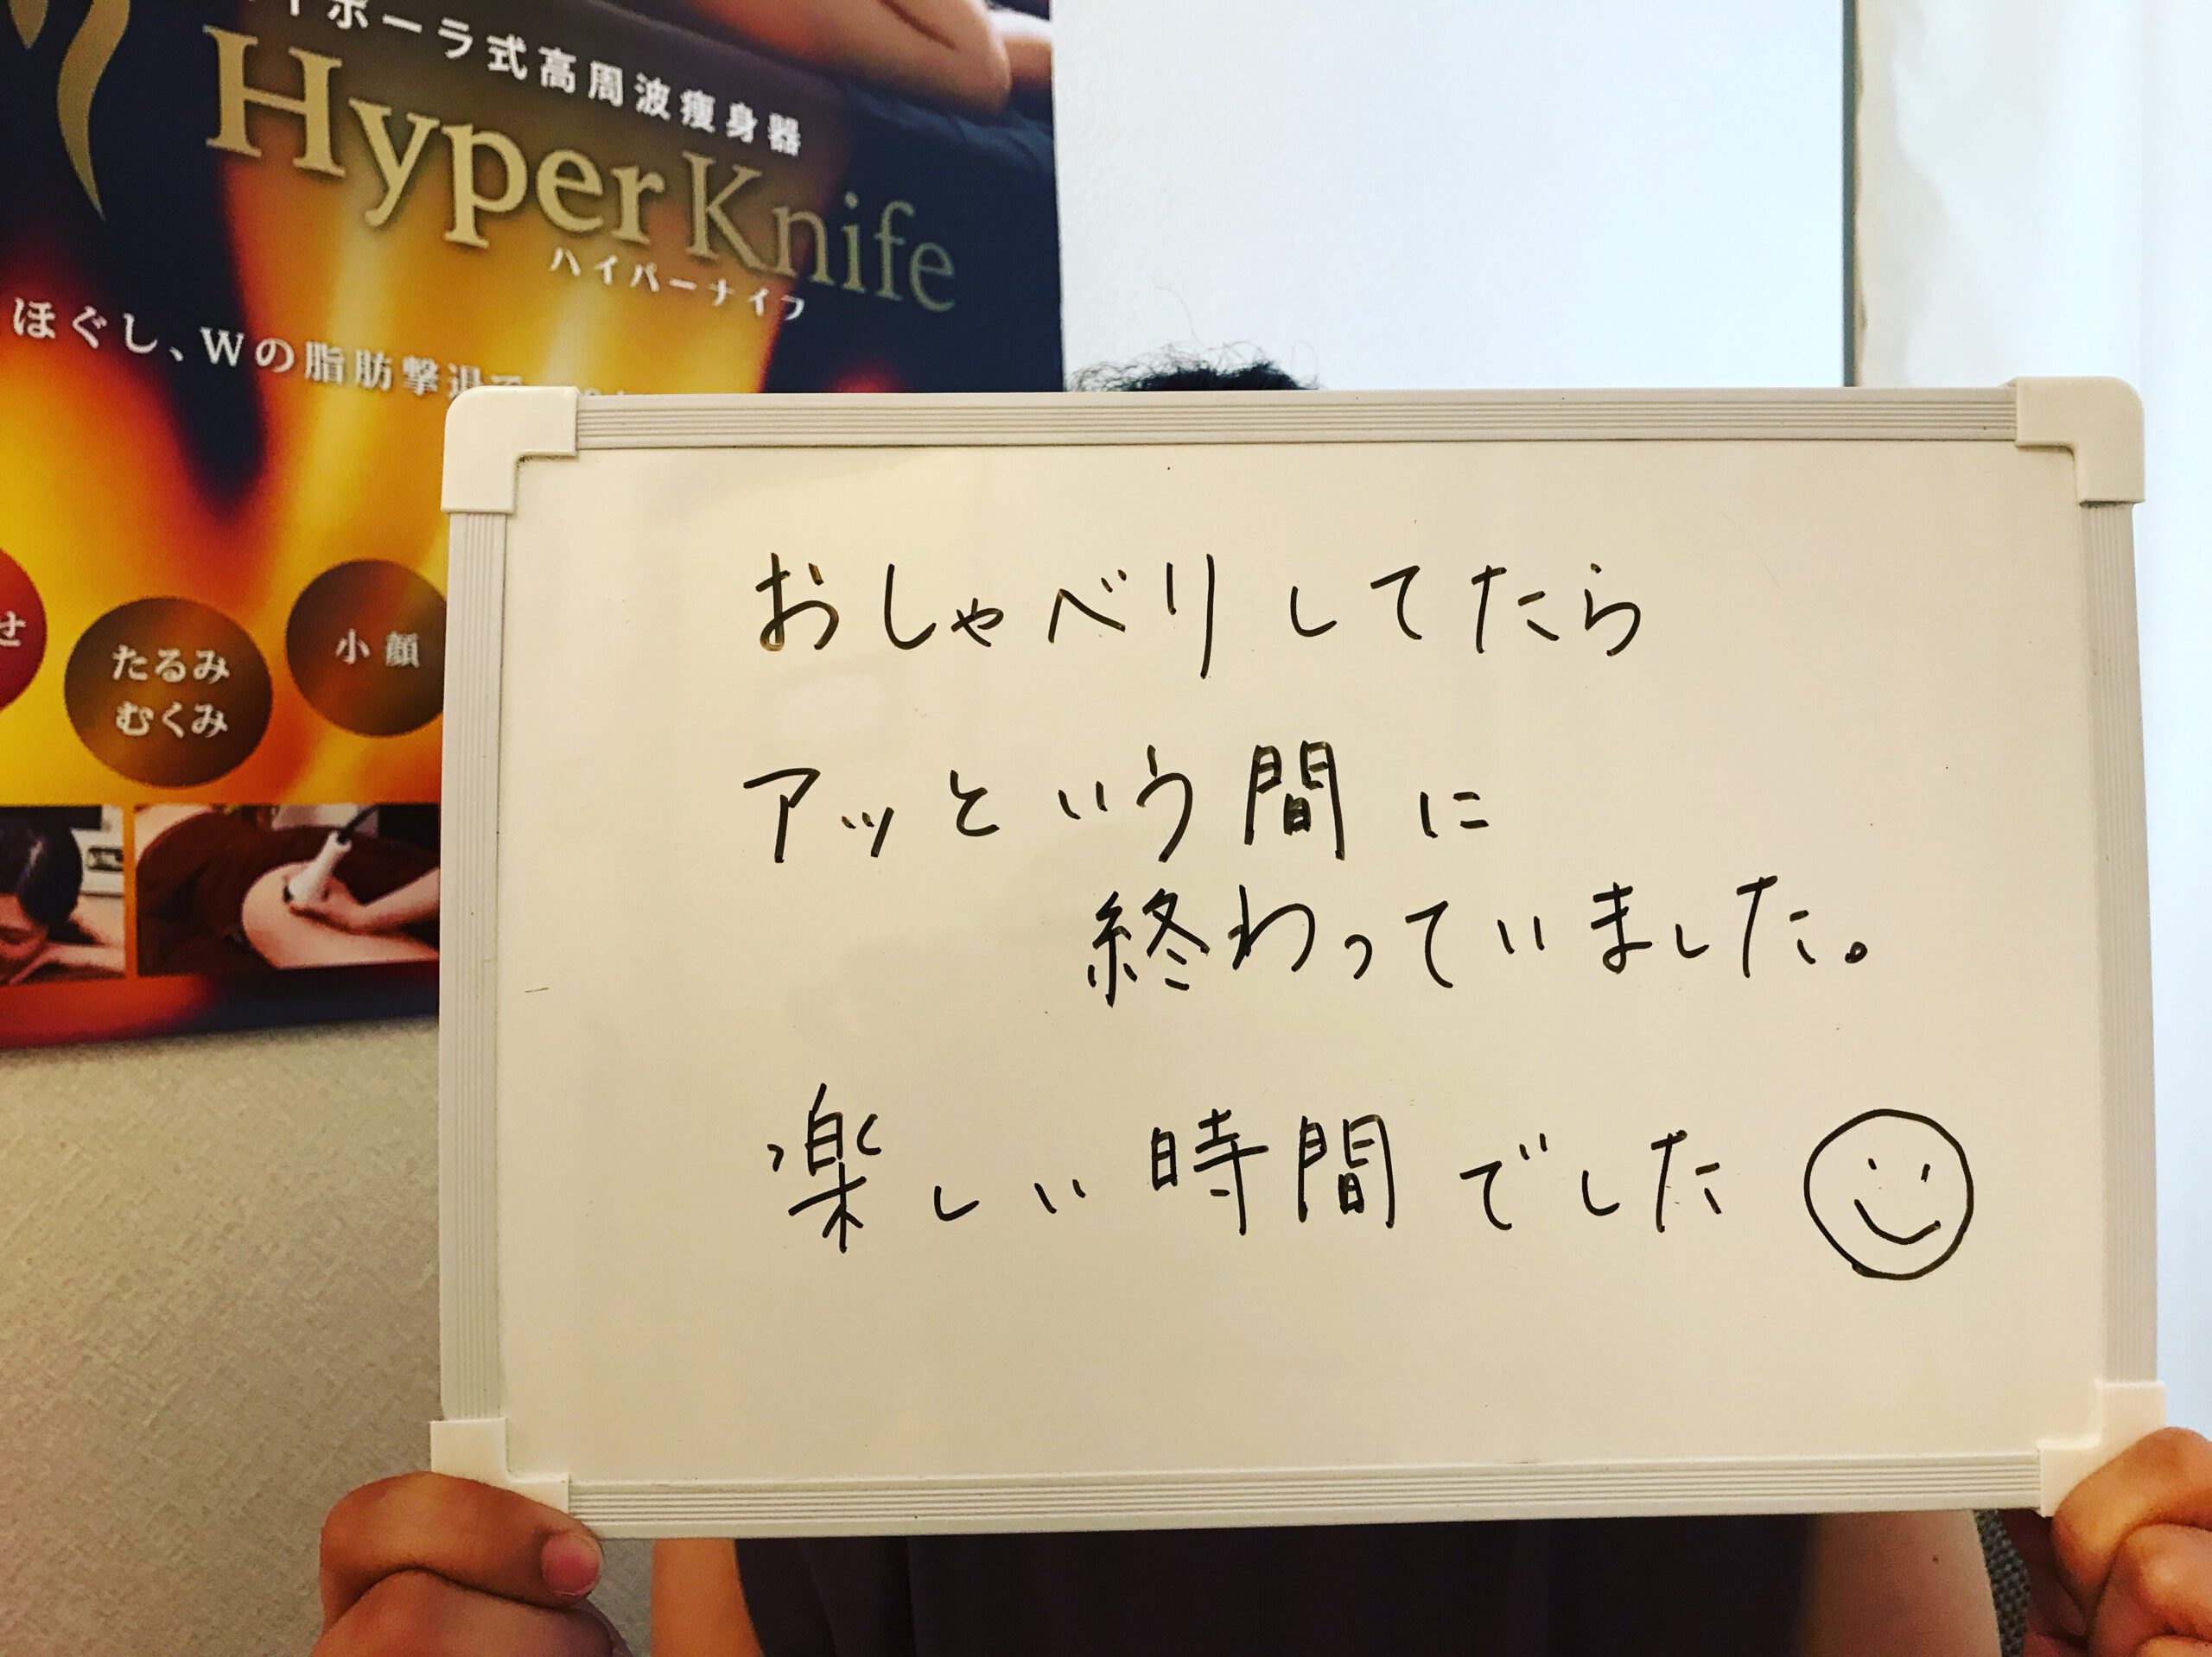 ポーラ式高周波痩身器
HyperKnife
ハイパーナイフ
ほぐし、Wの脂肪撃退で
せ
たるみ
むくみ
小顔
おしゃべりしてたら
アッという間に
終わっていました。
楽しい時間でした